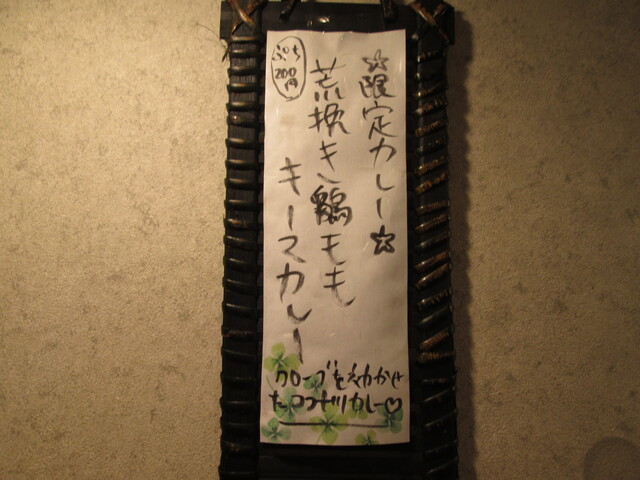 ☆限定カレー☆
荒挽き鶏もも
キーマカレー
ぷち
200円
クローブをきかせ
たココナッツカレー♡